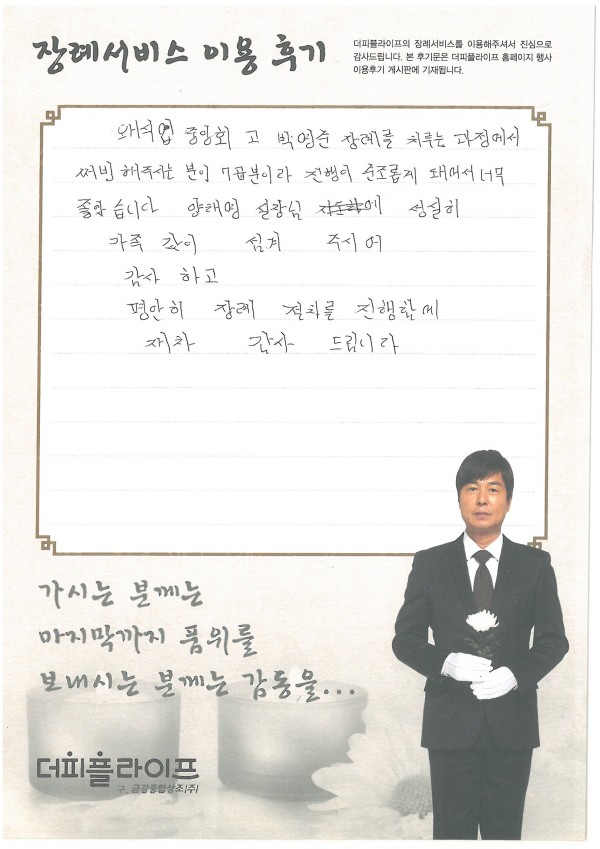 장례서비스 이용 후기
더피플라이프의 장례서비스를 이용해주셔서 진심으로
감사드립니다. 본 후기문은 더피플라이프 홈페이지 행사
이용후기 게시판에 기재됩니다.
중앙회 고 박영준 장례를 치루는 과정에서
써빙 해주시는 분이 진행이 순조롭게 돼며서 너무
좋았습니다 양태영 실장님 성실히
가족 같이 섬겨 주시어
감사 하고
평안히 장례 절차를 진행함에
재차 감사 드립니다
가시는 분께는
마지막까지 품위를
보내시는 분께는 감동을...
더피플라이프
구. 금강종합상조(주)